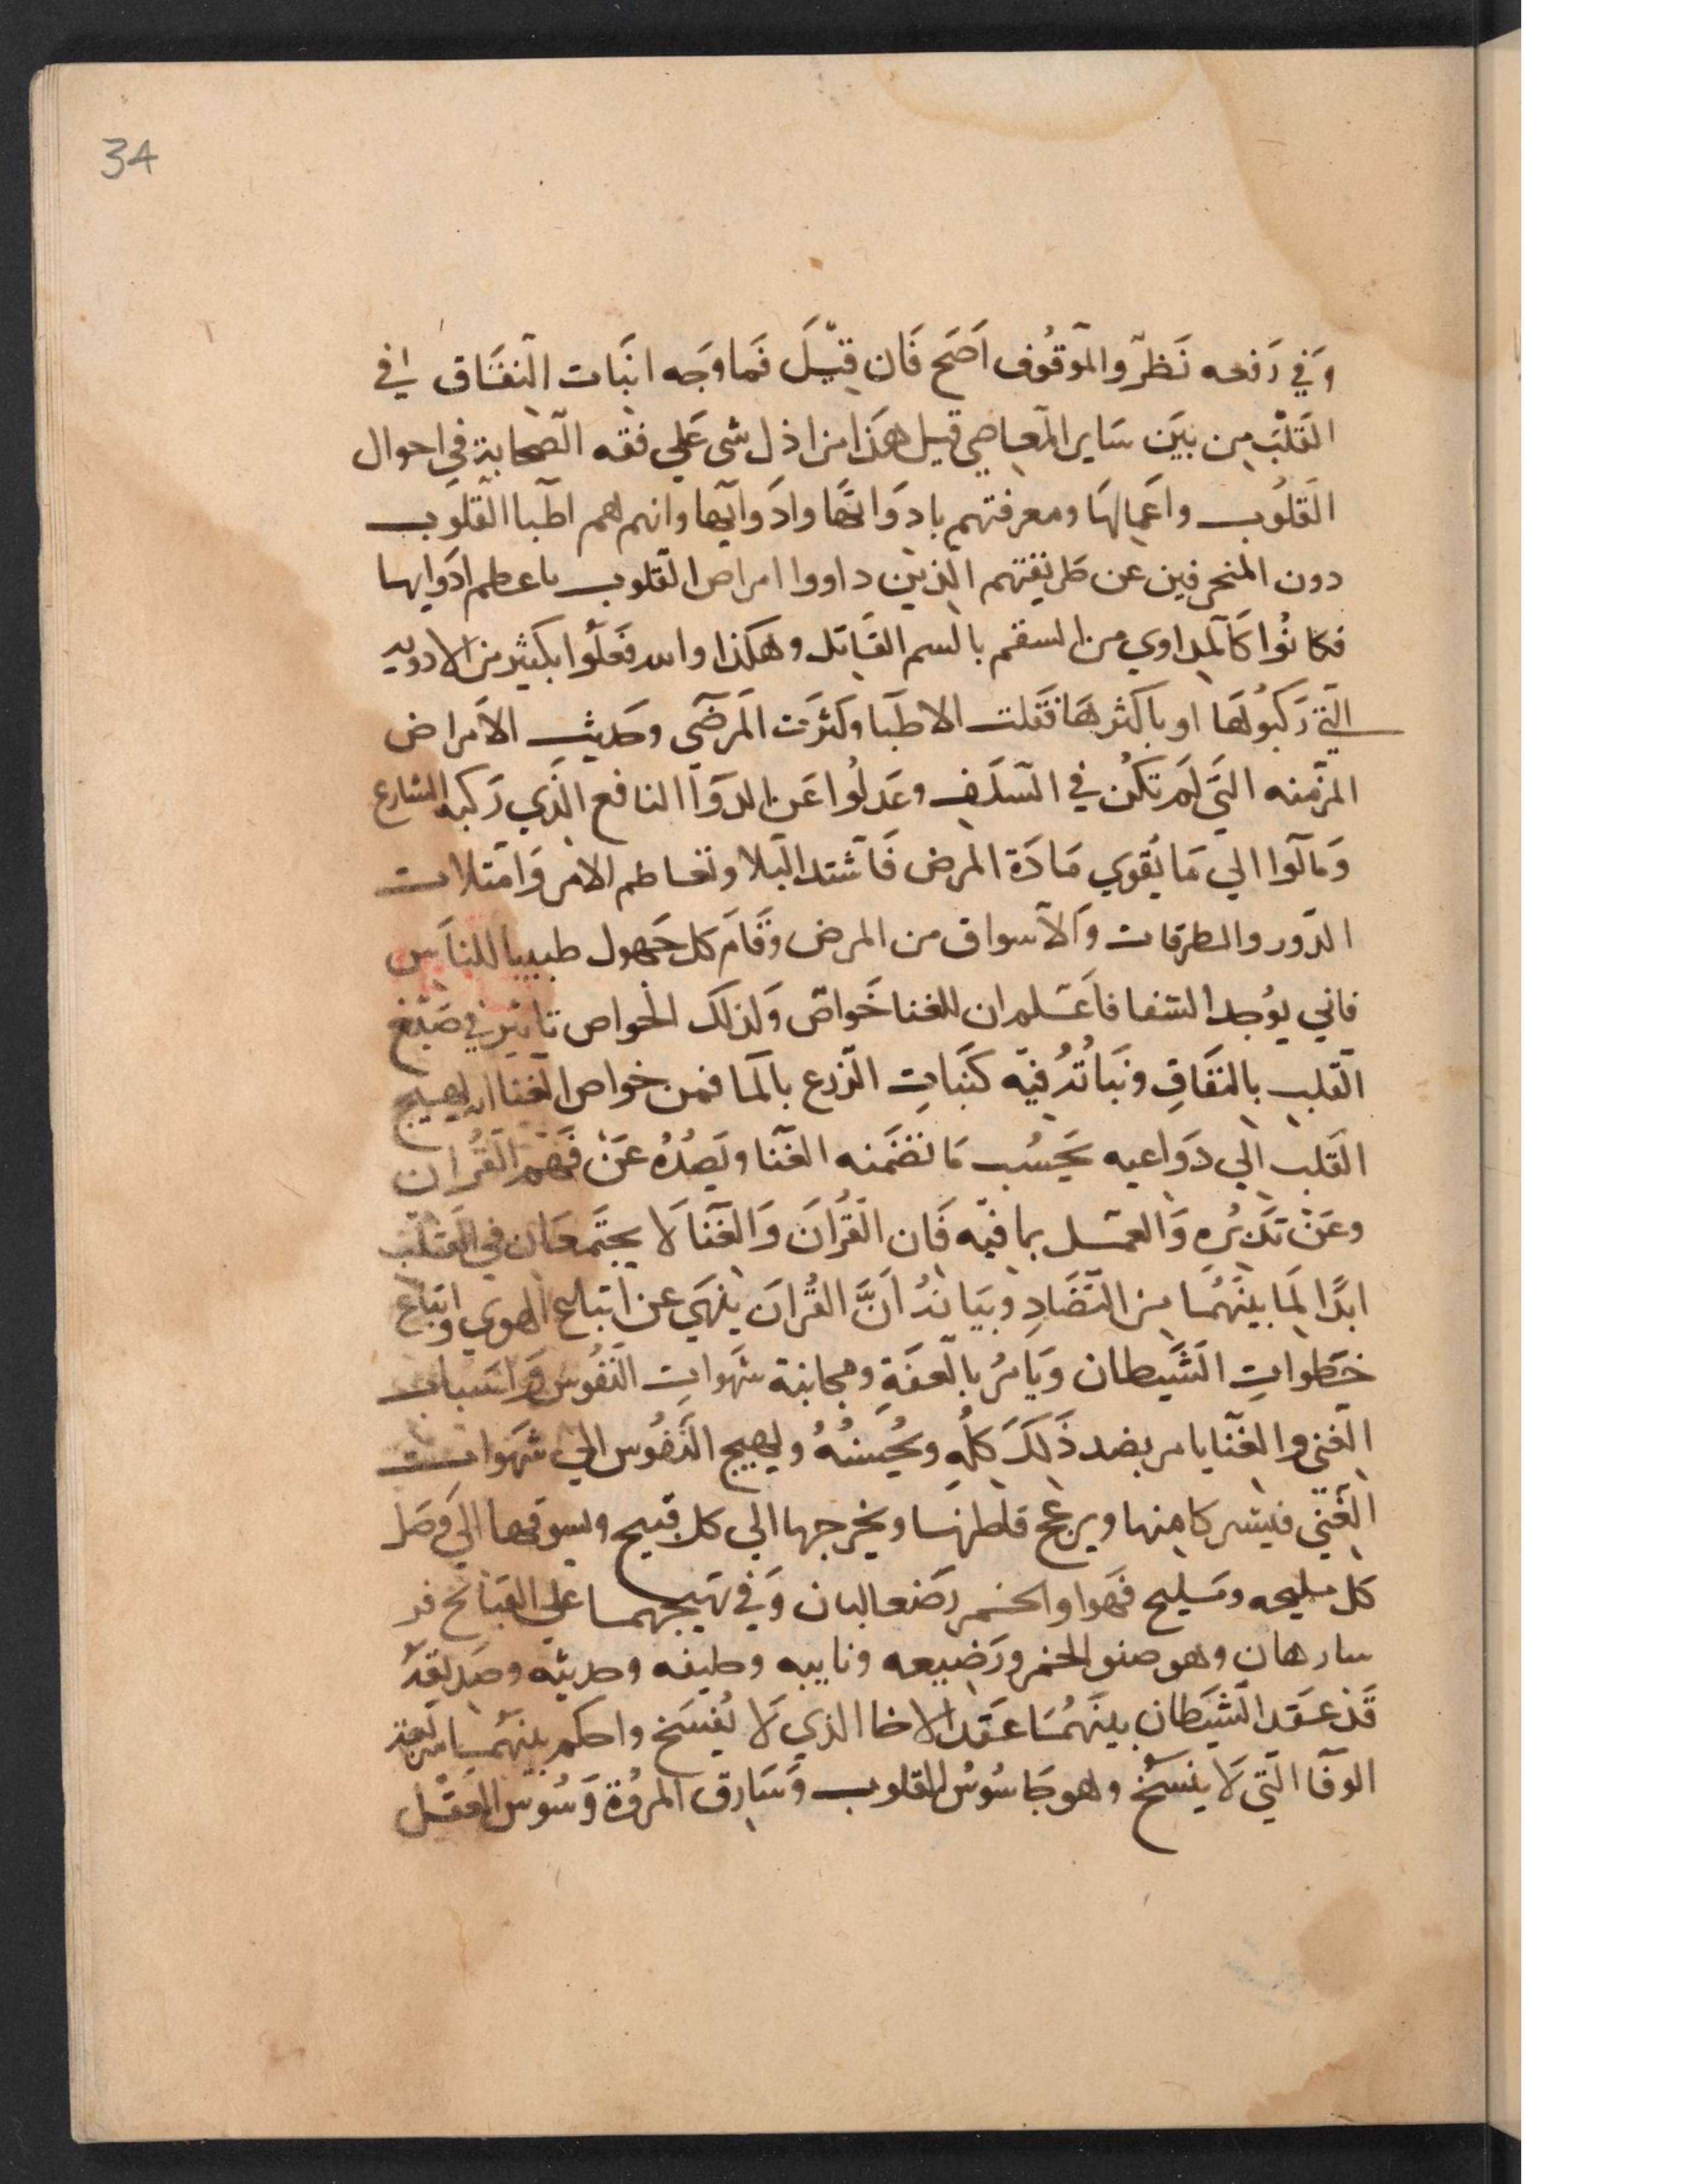 34
وَفي رَفعه نَظرٌ والموقُوف اَصَح فَان قِيْلَ فَما وَجه انبَات النفَاق في
القَلبْ مِن بَين سَاير المعَاصي قيل هَذا من اذل شى عَلي فقه الصحابة في احوال
القلُوب واَعمالهَا ومعرفتهم بادوَائهَا وادَوايها وانهم هم اطبا القلوب
دون المنحرفين عن طريقتهم الذين داووا امراض القلوب باعظم ادَوايها
فكانُوا كَالمداوي من السقم بالسم القَاتل وهكذا والله فَعلوُا بكثير من الادويه
التي رَكبُوهَا او باكثرهَا فقلت الاطبا وكثرَت المَرضَي وحديث الاَمراض
المزمنه التَي لَم تكُن في السَلَف وعَدلوُا عَن الدوَا النافع الذَي رَكبه الشارع
وَمالوا الي مَا يُقوي مَادَة المرض فَاشتد البَلا وتفاطم الامر وَامتلات
الدَور والطرقات وَالاسواق من المرض وقَام كل جَهول طبيبا للناسَ
فاني يوُجد الشفا فاعَلم ان للغنا خَواصّ وَلذلَك الخواص تاثير في صَبْغ
القَلب بالنفَاقِ ونَباتُهُ فيه كنَباتِ الزرع بالمَا فمن خواص الغنا انه يهيج
القَلب الي دَواعيه بحَسُب مَا تضمَنه الغنَا ويَصُدُهُ عَنْ فَهم القُران
وعَنْ تدَبُرهِ وَالعمَل بما فيْه فَان القُرانَ وَالغَنا لَا يجتَمعَان في القَلب
ابدًا لِمَا بينَهُمَا من التَضَادِ وبيَانهُ اَنَّ القُرانَ ينهَي عن اتباع الهوي واتباع
خطَواتِ الشَيطان وَيَامُر بالعفَةِ ومجانبة شهَواتِ النفُوس وَاسَباب
الغني والغنَا يامر بضد ذَلَكَ كلُهِ ويُحُسنُهُ ويهيج النفُوس الي شهَوات
الغَني فيثير كامنها ويزعج قاطنها ويخرجها الي كل قبيح ويسوقها الي وَصَل
كل مليحه ومَليح فهَوا والخَمر رَضعا لبان وَفي تهَييجهما علي القبَائح فر
سا رهان وهو صنو الخمر ورَضيعه ونايبه وحليفه وحديثه وصَديقهُ
قَد عَقد الشَيَطان بينَهُمَا عَقد الاخا الذي لَا يُفسَخ واحكم بينَهُمَا شريعة
الوفَا التَي لَا ينسَخُ وهو جَاسُوسُ القلوب وَسَارق المروُة وَسُوس العقل